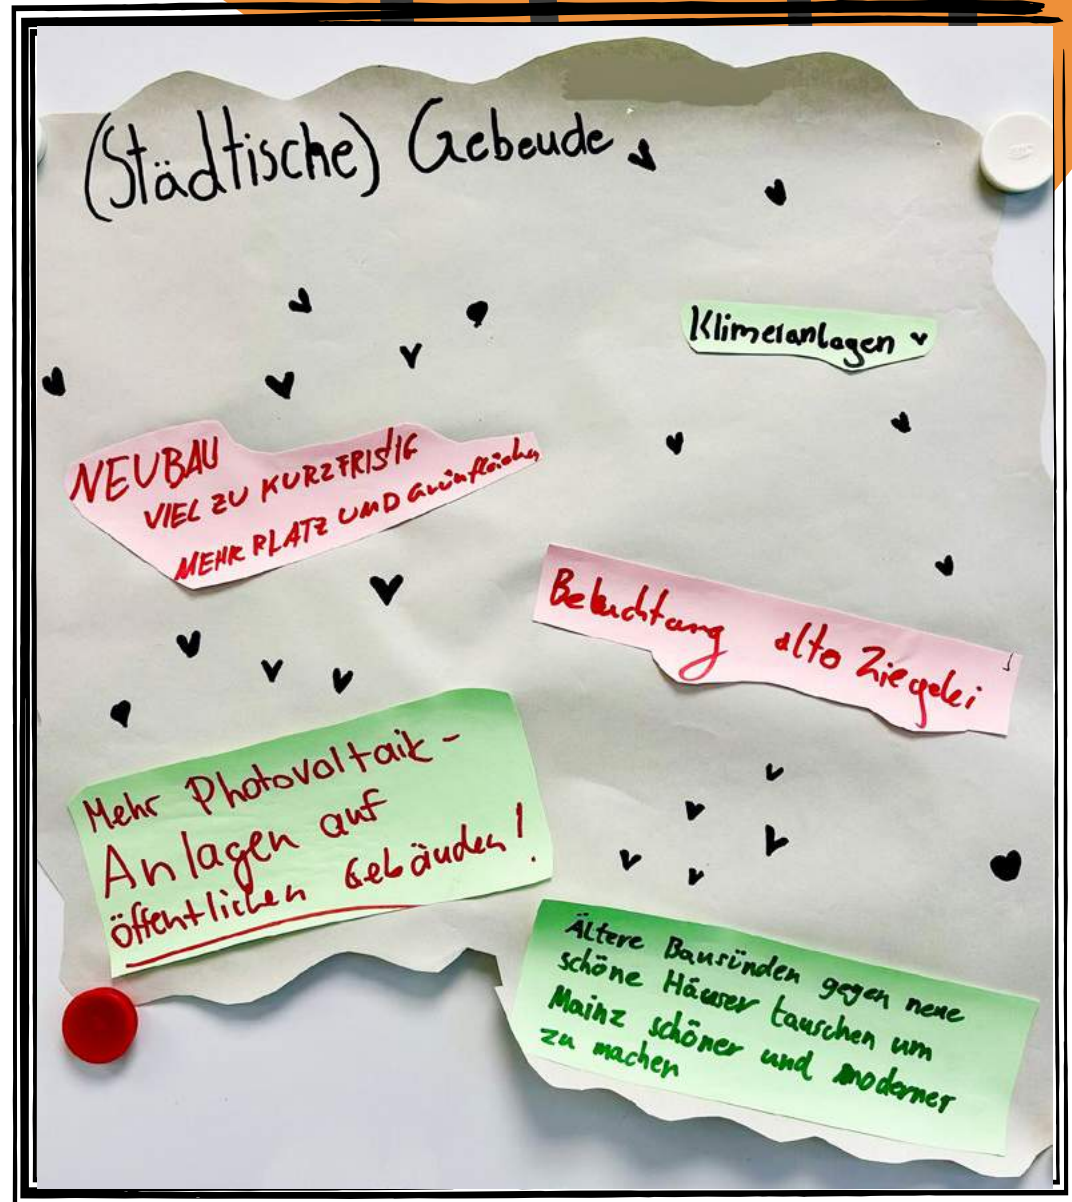 (Städtische) Gebeude
Klimaanlagen
NEUBAU
VIEL ZU KURZFRISTIG
MEHR PLATZ UND Grünflächen
Beleuchtung alte Ziegelei
Mehr Photovoltaik-
Anlagen auf
öffentlichen Gebäuden!
Ältere Bausünden gegen neue
schöne Häuser tauschen um
Mainz schöner und moderner
zu machen